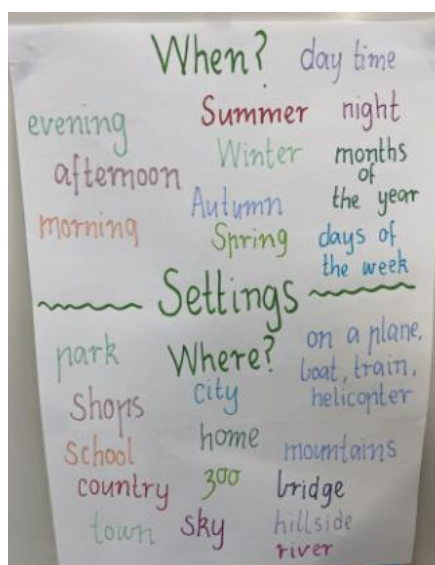 When?
day time
evening
Summer
night
afternoon
Winter
months
of
the year
morning
Autumn
Spring
days of
the week
Settings
park
Where?
on a plane,
boat, train,
helicopter
Shops
city
School
home
mountains
country
zoo
bridge
town
sky
hillside
river